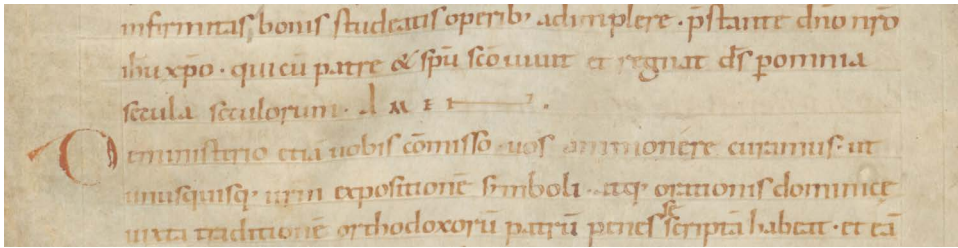 infirmitas, bonis studeatis operib; adimplere · p̄stante dn̄o nr̄o
ih̄u xp̄o · qui cū patre & sp̄u sc̄o uiuit et regnat d̄s p omnia
secula seculorum · a m e n .
De ministerio etiā uobis cōmisso · uos ammonere curamus · ut
unusquisq; ur̄m expositionē simboli · atq; orationis dominicę
iuxta traditionē orthodoxorū patrū penes se scriptā habeat · et eā